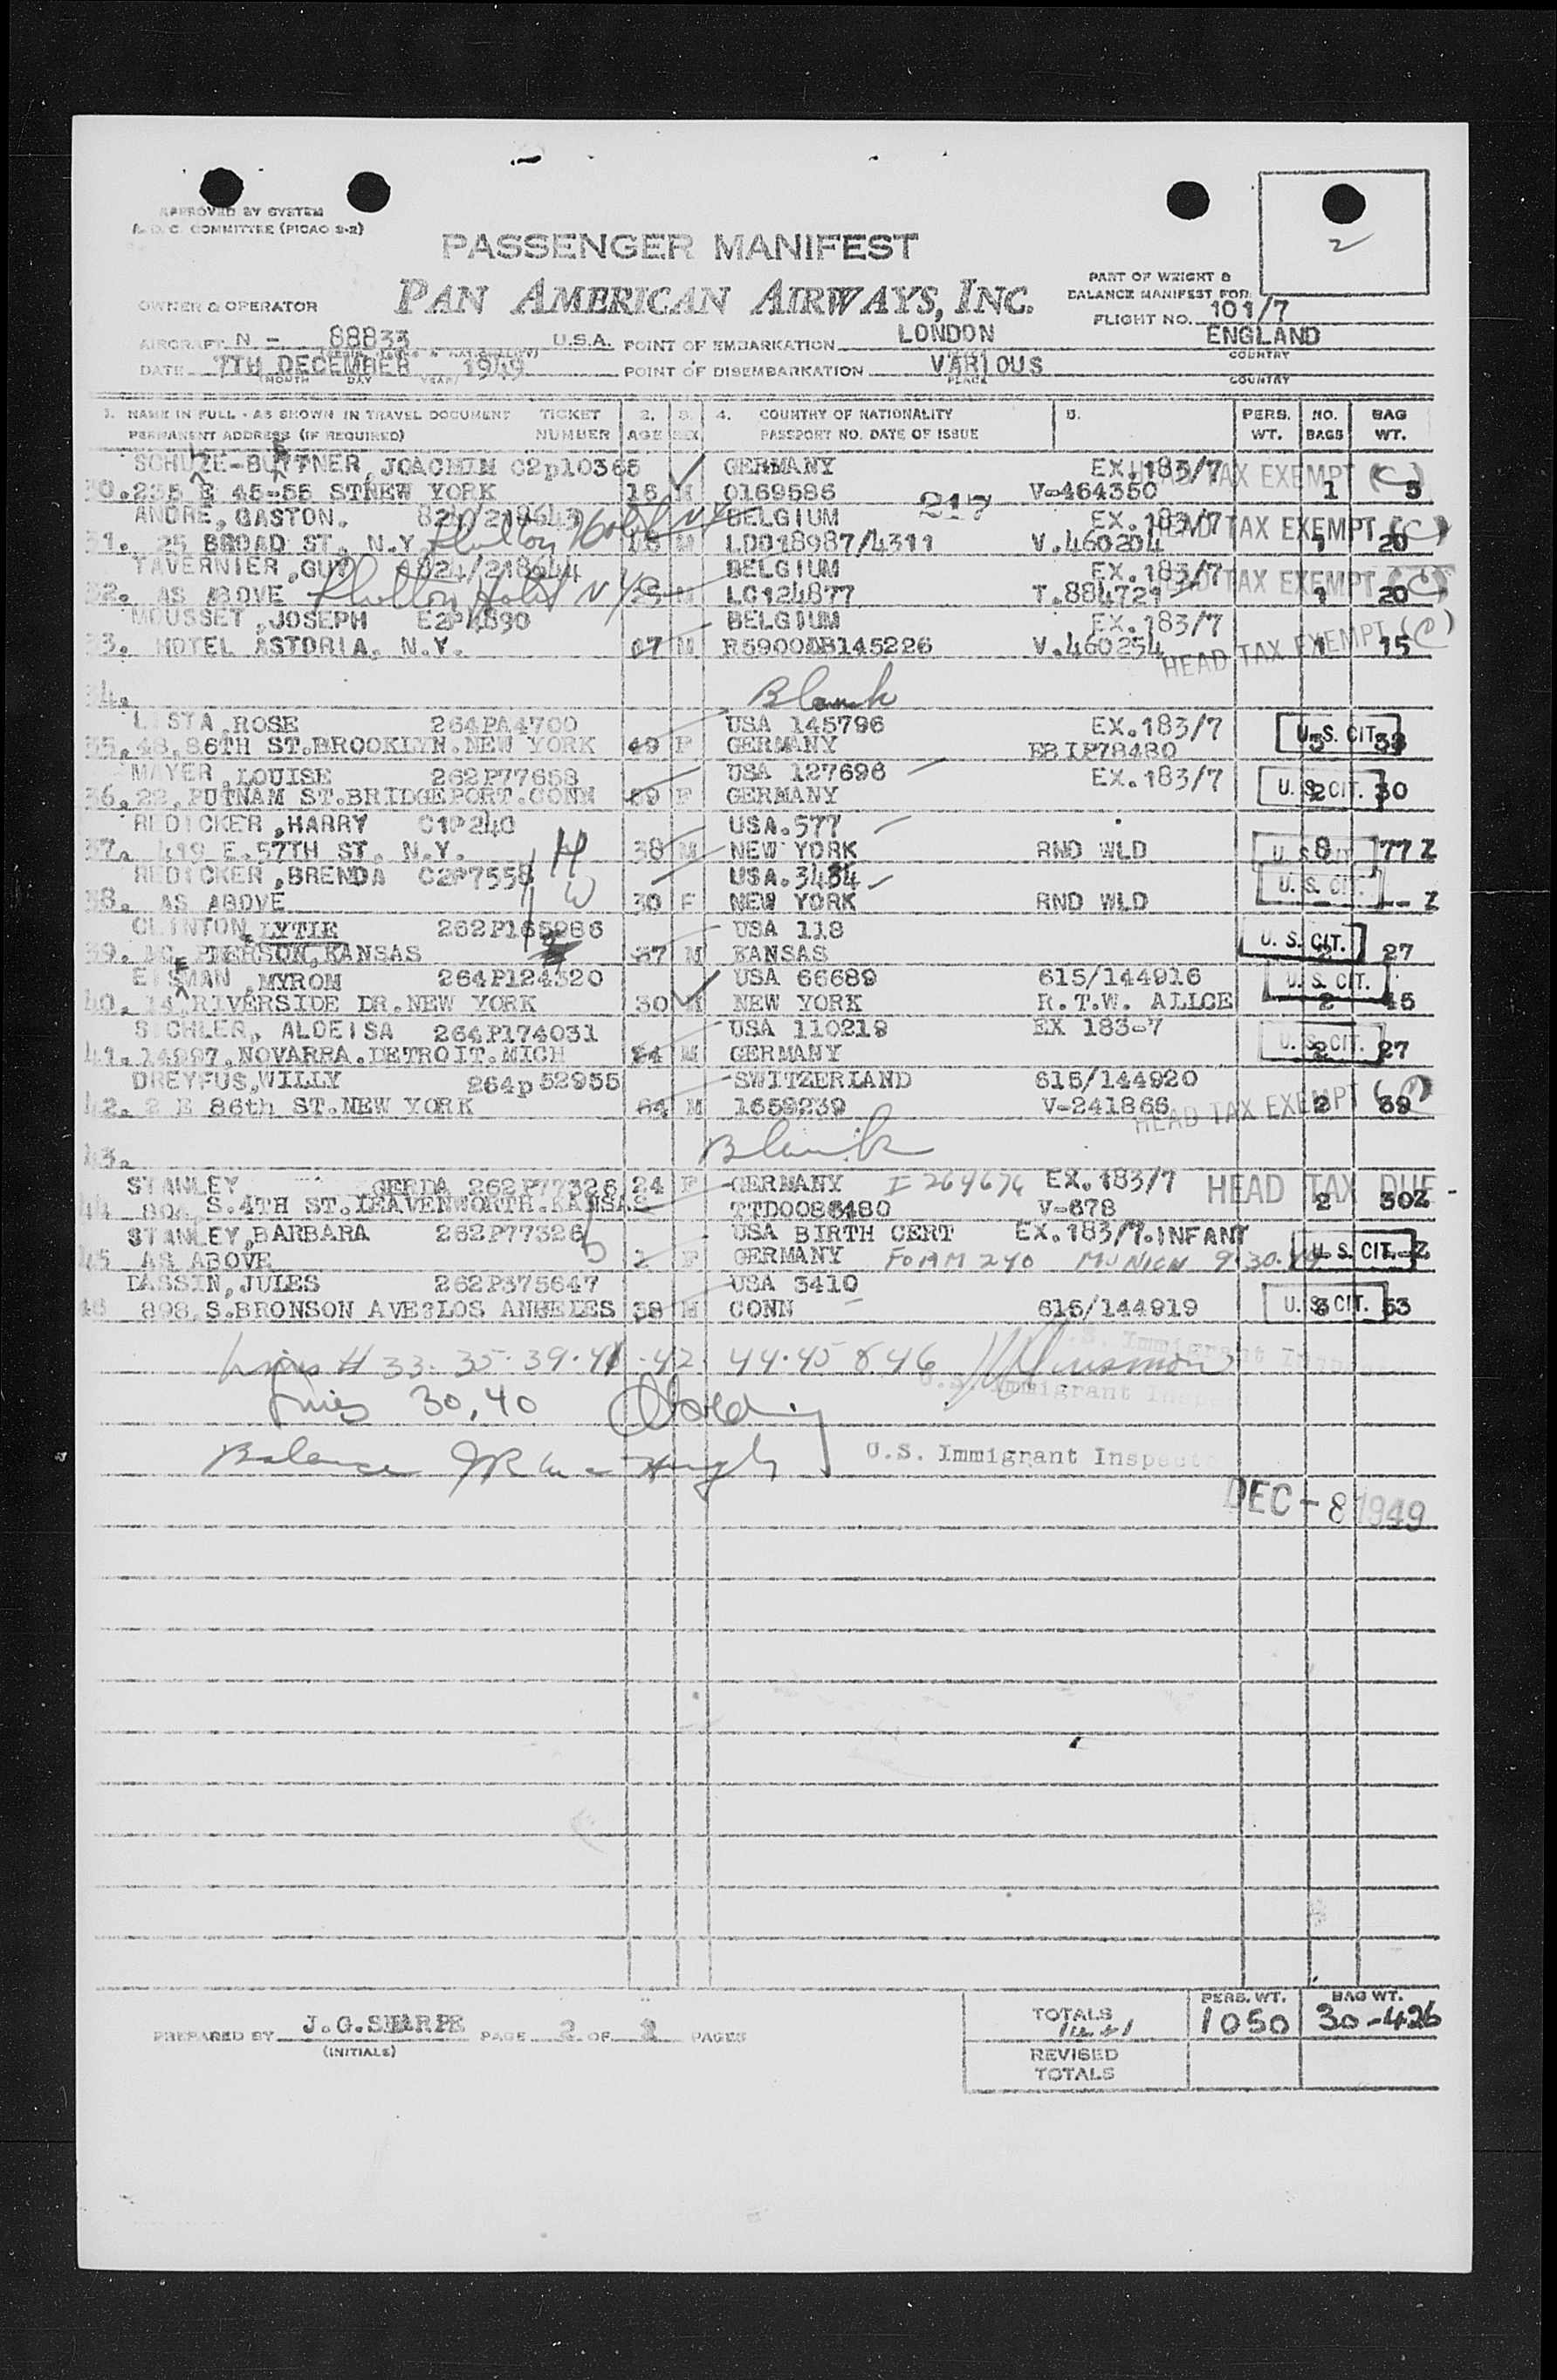 APPROVED BY SYSTEM
A.O.C. COMMITTEE (PICAO 2-2)
PASSENGER MANIFEST
2
PART OF WEIGHT &
BALANCE MANIFEST FOR
PAN AMERICAN AIRWAYS, INC.
OWNER & OPERATOR
FLIGHT NO. 101/7
AIRCRAFT N - 88833 U.S.A. POINT OF EMBARKATION LONDON ENGLAND
PLACE COUNTRY
DATE 7TH DECEMBER 1949 POINT OF DISEMBARKATION VARIOUS
(MONTH DAY YEAR) PLACE COUNTRY
1. NAME IN FULL - AS SHOWN IN TRAVEL DOCUMENT TICKET 2. 3. 4. COUNTRY OF NATIONALITY 5. PERS. NO. BAG
PERMANENT ADDRESS (IF REQUIRED) NUMBER AGE SEX PASSPORT NO. DATE OF ISSUE WT. BAGS WT.
SCHULZE-BUTTNER, JOACHIM C2p10365 GERMANY EX.183/7 HEAD TAX EXEMPT (C)
30. 235 E 45-55 STNEW YORK 16 M 0169586 217 V-464350 1 5
ANDRE, GASTON. BELGIUM EX.183/7 HEAD TAX EXEMPT (C)
31. 25 BROAD ST. N.Y. Hotel M LD018987/4311 V.460204 1 20
TAVERNIER, GUY 218644 BELGIUM EX.183/7 HEAD TAX EXEMPT (C)
32. AS ABOVE Hotel N Y M LC124877 T.884721 1 20
MOUSSET, JOSEPH E2P4890 BELGIUM EX.183/7 HEAD TAX EXEMPT (C)
33. HOTEL ASTORIA, N.Y. 67 M V.460254 1 15
34. Blank
LISTA, ROSE 264PA4700 USA 145796 EX.183/7 U.S. CIT.
35. 48, 86TH ST.BROOKLYN.NEW YORK 49 F GERMANY EBIP78480
MAYER, LOUISE 262P77658 USA 127696 EX.183/7 U.S. CIT.
36. 22, PUTNAM ST.BRIDGEPORT.CONN F GERMANY 2 30
REDICKER, HARRY C1P240 USA.577
37. 419 E.57TH ST. N.Y. H 38 M NEW YORK RND WLD U.S. CIT. 8 77 Z
REDICKER, BRENDA C2P7558 USA.3484
38. AS ABOVE W 30 F NEW YORK RND WLD U.S. CIT. -- Z
CLINTON, LYTIE 262P165986 USA 118
39. PIERSON, KANSAS 37 M KANSAS U.S. CIT. 2 27
EISMAN, MYROM 264P124320 USA 66689 615/144916
40. 14, RIVERSIDE DR.NEW YORK 30 M NEW YORK R.T.W. ALLCE U.S. CIT. 2 45
SICHLER, ALOEISA 264P174031 USA 110219 EX 183-7
41. 14997, NOVARRA.DETROIT.MICH M GERMANY U.S. CIT. 2 27
DREYFUS, WILLY 264p 52955 SWITZERLAND 615/144920
42. 2 E 86th ST.NEW YORK 64 M 1659239 V-241866 HEAD TAX EXEMPT 2 39
43. Blank
STANLEY GERDA 262P77326 24 F GERMANY I 264676 EX.183/7 HEAD TAX DUE
44 804, S.4TH ST.LEAVENWORTH.KANSAS V-678 2 30Z
STANLEY, BARBARA 262P77326 USA BIRTH CERT EX.183/7.INFANT
45 AS ABOVE F GERMANY FORM 240 MUNICH 9.30.49 U.S. CIT. -Z
DASSIN, JULES 262P375647 USA 3410
46 898, S.BRONSON AVE LOS ANGELES 38 M CONN 615/144919 U.S. CIT. 3 53
Lines # 33. 35. 39. 41. 42. 44. 45 & 46
U.S. Immigrant Inspector
Lines 30, 40
Balance
U.S. Immigrant Inspector
DEC - 8 1949
PREPARED BY J.G.SHARPE PAGE 2 OF 2 PAGES
(INITIALS)
TOTALS 14+1 PERS. WT. 1050 BAG WT. 30-426
REVISED
TOTALS